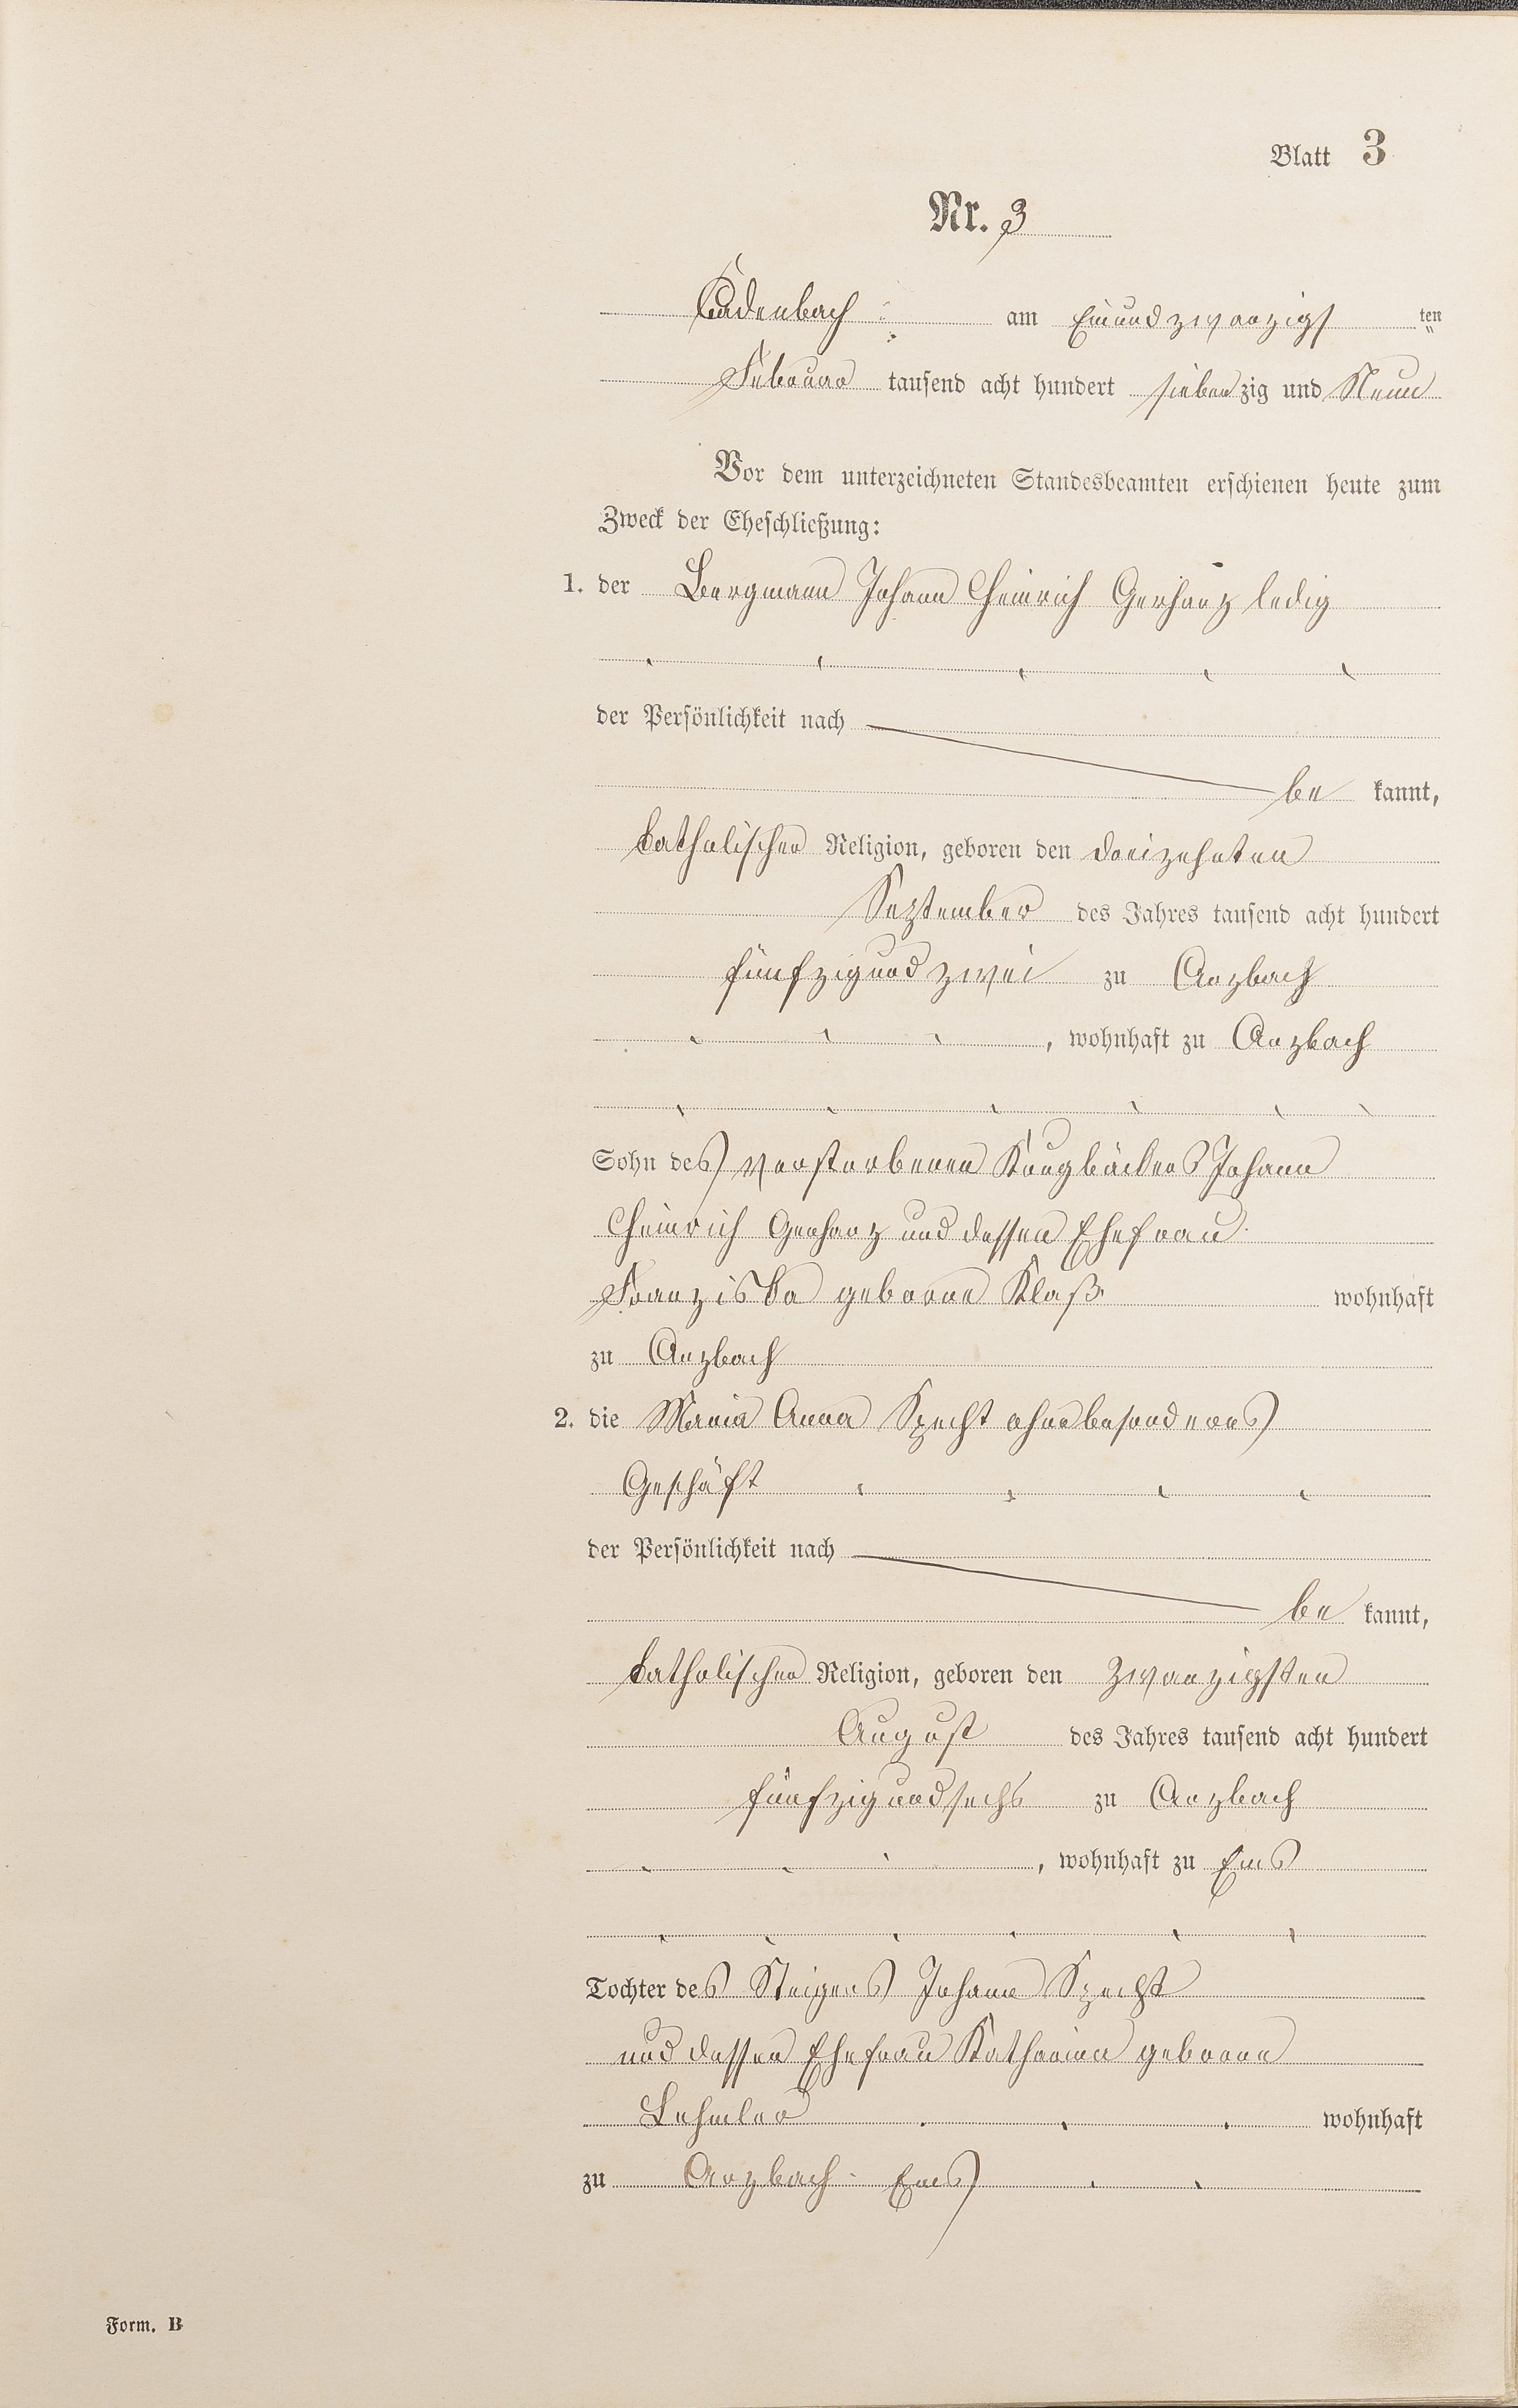 Blatt 3
Nr. 3
Kadenbach am Einundzwanzigs ten
Februar tausend acht hundert siebenzig und Neun
Vor dem unterzeichneten Standesbeamten erschienen heute zum
Zweck der Eheschließung:
1. der Bergmann Johann Heinrich Gerharz ledig
der Persönlichkeit nach
be kannt,
katholischer Religion, geboren den dreizehnten
September des Jahres tausend acht hundert
fünfzig und zwei zu Arzbach
, wohnhaft zu Arzbach
Sohn des verstorbenen Krugbäckers Johann
Heinrich Gerharz und dessen Ehefrau
Franziska geborne Klaß wohnhaft
zu Arzbach
2. die Maria Anna Specht ohne besonderes
Geschäft
der Persönlichkeit nach
be kannt,
katholischer Religion, geboren den zwanzigsten
August des Jahres tausend acht hundert
fünfzig und sechs zu Arzbach
, wohnhaft zu Ems
Tochter des Steigers Johann Specht
und dessen Ehefrau Katharina geborne
Lehmler wohnhaft
zu Arzbach-Ems
Form. B